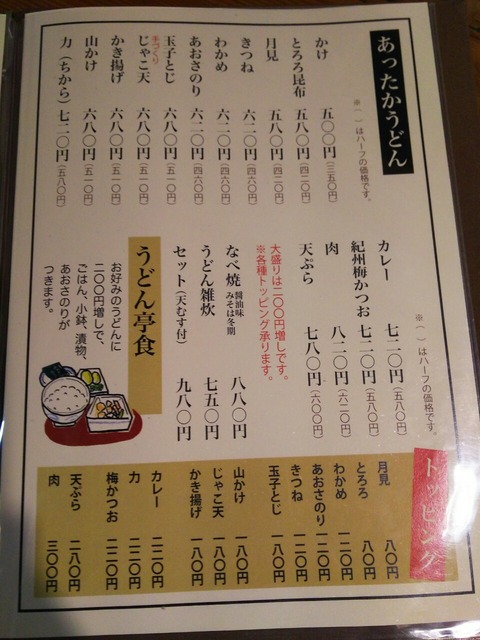 あったかうどん
※( )はハーフの価格です。
かけ 五〇〇円(三五〇円)
とろろ昆布 五八〇円(四二〇円)
月見 五八〇円(四二〇円)
きつね 六二〇円(四六〇円)
わかめ 六二〇円(四六〇円)
あおさのり 六二〇円(四六〇円)
玉子とじ 六八〇円(五一〇円)
手づくり
じゃこ天 六八〇円(五一〇円)
かき揚げ 六八〇円(五一〇円)
山かけ 六八〇円(五一〇円)
力(ちから) 七二〇円(五八〇円)
※( )はハーフの価格です。
カレー 七二〇円(五八〇円)
紀州梅かつお 七二〇円(五八〇円)
肉 八二〇円(六二〇円)
天ぷら 七八〇円(六〇〇円)
大盛りは二〇〇円増しです。
※各種トッピング承ります。
なべ焼 醤油味 みそは冬期 八八〇円
うどん雑炊 七五〇円
セット(天むす付) 九八〇円
うどん亭食
お好みのうどんに
二〇〇円増しで、
ごはん、小鉢、漬物、
あおさのりが
つきます。
トッピング
月見 八〇円
とろろ 八〇円
わかめ 一二〇円
あおさのり 一二〇円
きつね 一二〇円
玉子とじ 一八〇円
山かけ 一八〇円
じゃこ天 一八〇円
かき揚げ 一八〇円
カレー 二二〇円
力 二二〇円
梅かつお 二二〇円
天ぷら 二八〇円
肉 三〇〇円